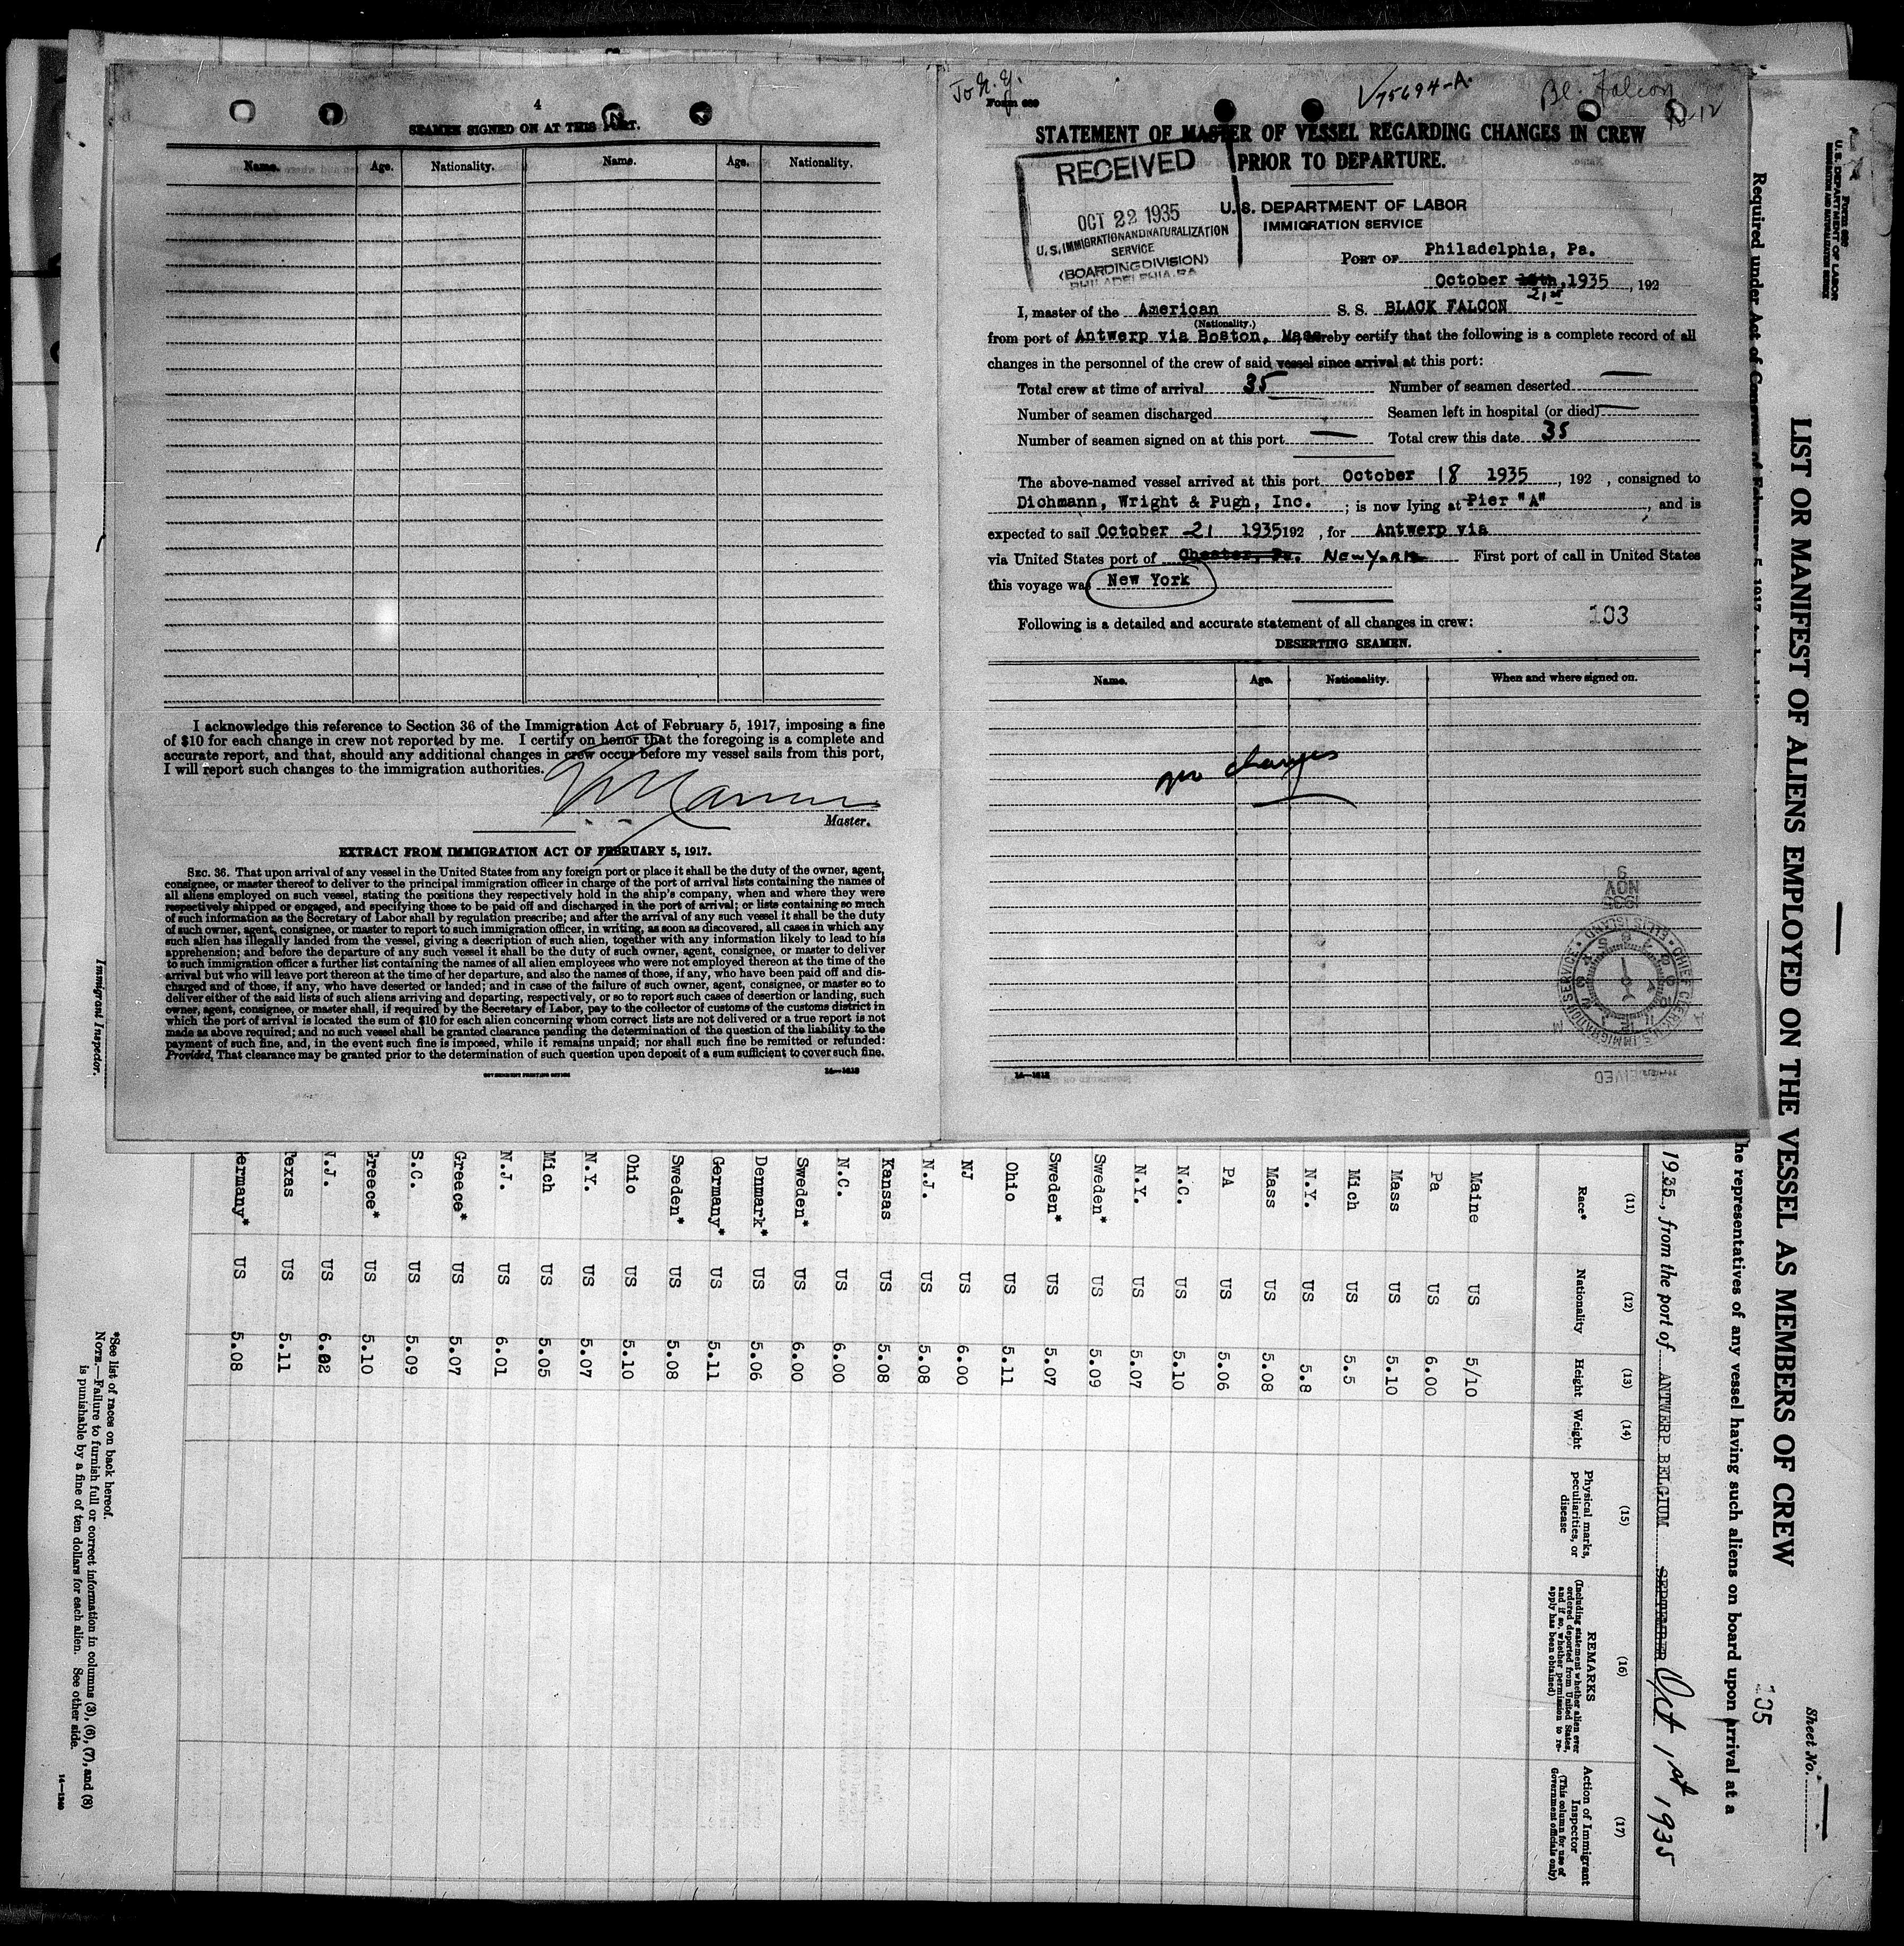 4
SEAMEN SIGNED ON AT THIS PORT.
Name. Age. Nationality. Name. Age. Nationality.
I acknowledge this reference to Section 36 of the Immigration Act of February 5, 1917, imposing a fine
of $10 for each change in crew not reported by me. I certify on honor that the foregoing is a complete and
accurate report, and that, should any additional changes in crew occur before my vessel sails from this port,
I will report such changes to the immigration authorities.
Master.
EXTRACT FROM IMMIGRATION ACT OF FEBRUARY 5, 1917.
SEC. 36. That upon arrival of any vessel in the United States from any foreign port or place it shall be the duty of the owner, agent,
consignee, or master thereof to deliver to the principal immigration officer in charge of the port of arrival lists containing the names of
all aliens employed on such vessel, stating the positions they respectively hold in the ship's company, when and where they were
respectively shipped or engaged, and specifying those to be paid off and discharged in the port of arrival; or lists containing so much
of such information as the Secretary of Labor shall by regulation prescribe; and after the arrival of any such vessel it shall be the duty
of such owner, agent, consignee, or master to report to such immigration officer, in writing, as soon as discovered, all cases in which any
such alien has illegally landed from the vessel, giving a description of such alien, together with any information likely to lead to his
apprehension; and before the departure of any such vessel it shall be the duty of such owner, agent, consignee, or master to deliver
to such immigration officer a further list containing the names of all alien employees who were not employed thereon at the time of the
arrival but who will leave port thereon at the time of her departure, and also the names of those, if any, who have been paid off and dis-
charged and of those, if any, who have deserted or landed; and in case of the failure of such owner, agent, consignee, or master so to
deliver either of the said lists of such aliens arriving and departing, respectively, or so to report such cases of desertion or landing, such
owner, agent, consignee, or master shall, if required by the Secretary of Labor, pay to the collector of customs of the customs district in
which the port of arrival is located the sum of $10 for each alien concerning whom correct lists are not delivered or a true report is not
made as above required; and no such vessel shall be granted clearance pending the determination of the question of the liability to the
payment of such fine, and, in the event such fine is imposed, while it remains unpaid; nor shall such fine be remitted or refunded:
Provided, That clearance may be granted prior to the determination of such question upon deposit of a sum sufficient to cover such fine.
GOVERNMENT PRINTING OFFICE 14—1618
To N.Y.
Form 689
V75694-A.
Bl. Falcon
STATEMENT OF MASTER OF VESSEL REGARDING CHANGES IN CREW
PRIOR TO DEPARTURE.
RECEIVED
OCT 22 1935
U.S. IMMIGRATION AND NATURALIZATION
SERVICE
(BOARDING DIVISION)
PHILADELPHIA, PA
U. S. DEPARTMENT OF LABOR
IMMIGRATION SERVICE
PORT OF Philadelphia, Pa.
October 21st, 1935, 192
I, master of the American S. S. BLACK FALCON
(Nationality.)
from port of Antwerp via Boston, Mass hereby certify that the following is a complete record of all
changes in the personnel of the crew of said vessel since arrival at this port:
Total crew at time of arrival 35 Number of seamen deserted —
Number of seamen discharged Seamen left in hospital (or died) —
Number of seamen signed on at this port — Total crew this date 35
The above-named vessel arrived at this port October 18 1935, 192 , consigned to
Dichmann, Wright & Pugh, Inc. ; is now lying at Pier "A", and is
expected to sail October 21 1935 192 , for Antwerp via
via United States port of Chester, Pa. New York First port of call in United States
this voyage was New York
103
Following is a detailed and accurate statement of all changes in crew:
DESERTING SEAMEN.
Name. Age. Nationality. When and where signed on.
no changes
1935 NOV 9
CHIEF CLERK U.S. IMMIGRATION SERVICE ELLIS ISLAND
RECEIVED
14—1618
Sheet No.
105
U. S. DEPARTMENT OF LABOR
LIST OR MANIFEST OF ALIENS EMPLOYED ON THE VESSEL AS MEMBERS OF CREW
Required under Act of Congress of February 5, 1917
he representatives of any vessel having such aliens on board upon arrival at a
1935, from the port of ANTWERP BELGIUM SEPTEMBER Oct 1st 1935
(11) (12) (13) (14) (15) (16) (17)
Race* Nationality Height Weight Physical marks, peculiarities, or disease
REMARKS (Including statement whether alien ever ordered deported from United States, and if so, whether permission to reapply has been obtained)
Action of Immigrant Inspector (This column for use of Government officials only)
Maine US 5/10
Pa US 6.00
Mass US 5.10
Mich US 5.5
N.Y. US 5.8
Mass US 5.08
PA US 5.06
N.C. US 5.10
N.Y. US 5.07
Sweden* US 5.09
Sweden* US 5.07
Ohio US 5.11
NJ US 6.00
N.J. US 5.08
Kansas US 5.08
N.C. US 6.00
Sweden* US 6.00
Denmark* US 5.06
Germany* US 5.11
Sweden* US 5.08
Ohio US 5.10
N.Y. US 5.07
Mich US 5.05
N.J. US 6.01
Greece* US 5.07
S.C. US 5.09
Greece* US 5.10
N.J. US 6.02
Texas US 5.11
ermany* US 5.08
*See list of races on back hereof.
NOTE.—Failure to furnish full or correct information in columns (3), (6), (7), and (8)
is punishable by a fine of ten dollars for each alien. See other side.
14—1240
Immigrant Inspector.